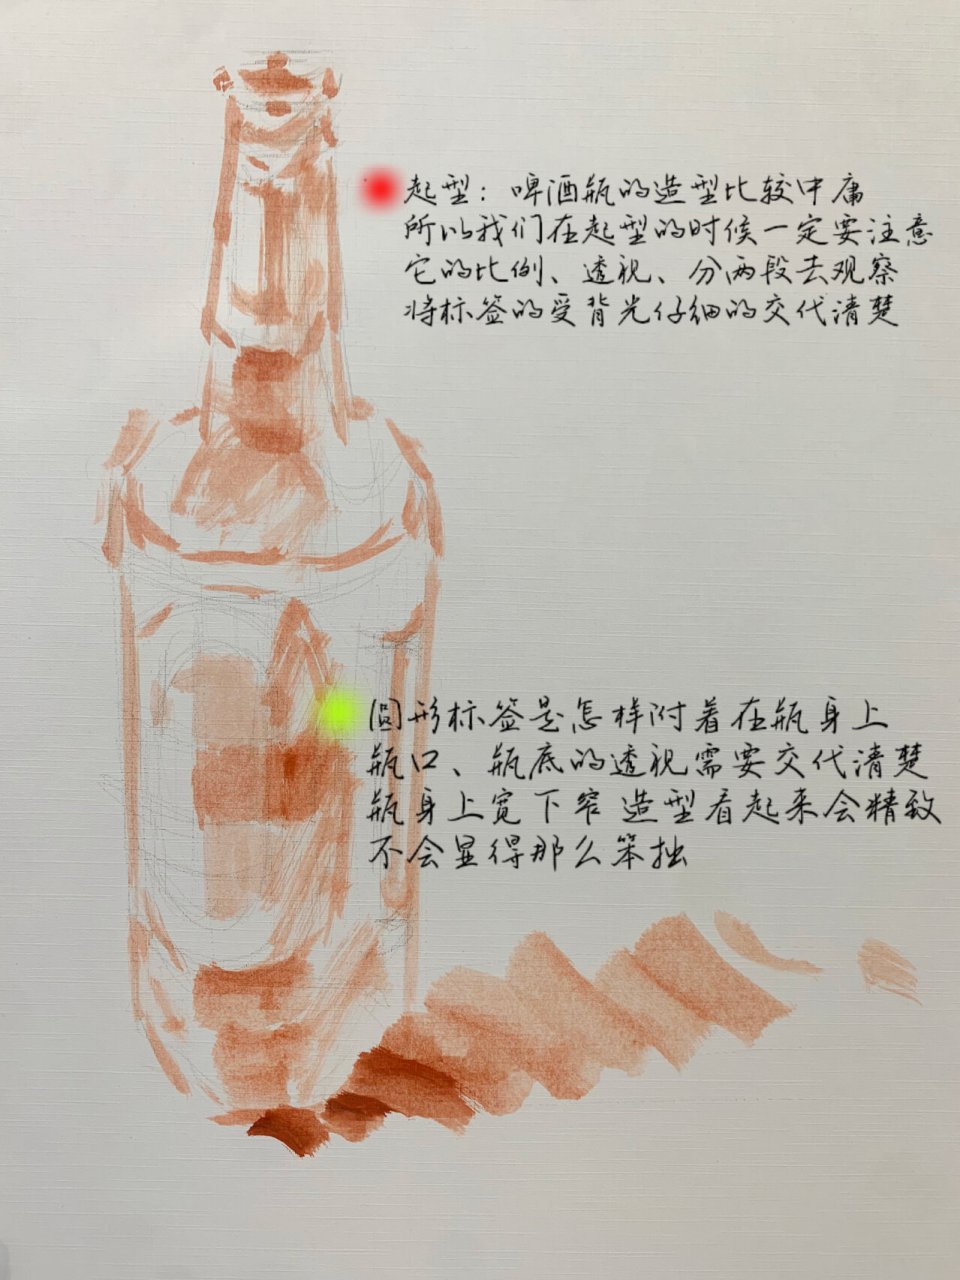 起型：啤酒瓶的造型比较中庸
所以我们在起型的时候一定要注意
它的比例、透视、分两段去观察
将标签的受背光仔细的交代清楚
圆形标签是怎样附着在瓶身上
瓶口、瓶底的透视需要交代清楚
瓶身上宽下窄 造型看起来会精致
不会显得那么笨拙